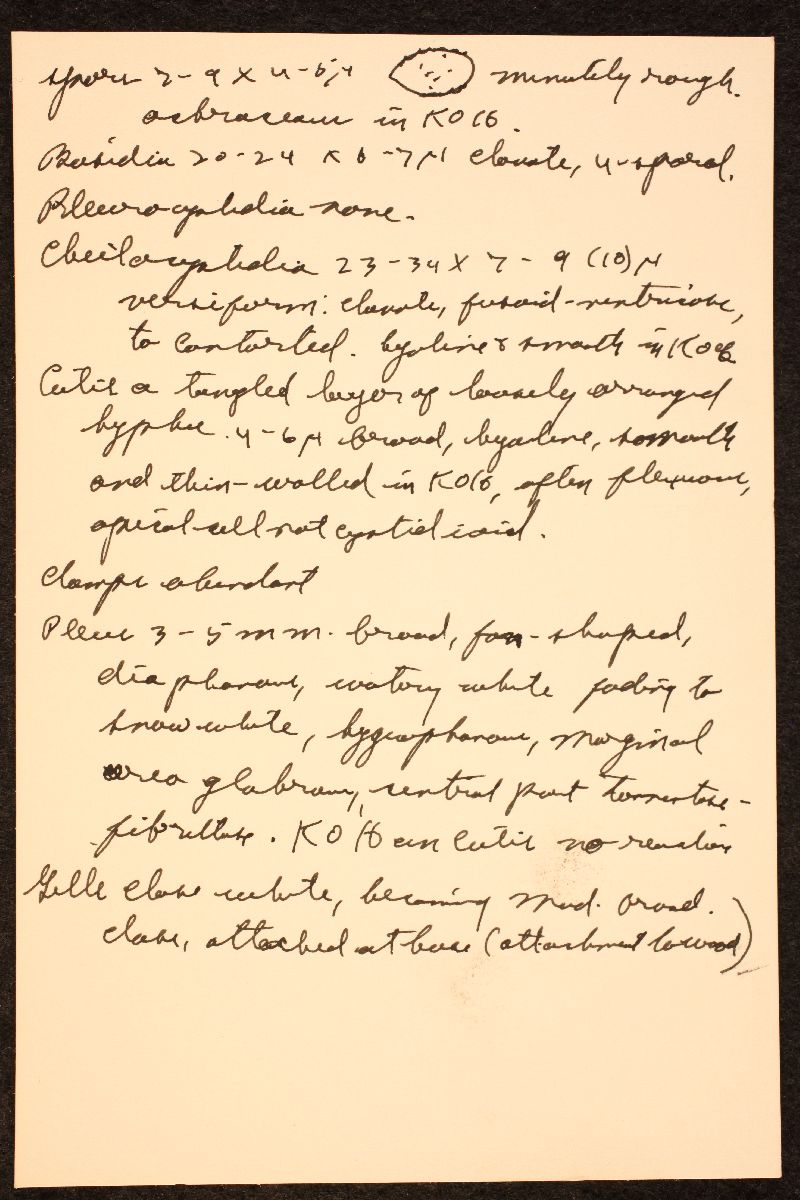 Spores 7-9 X 4-5μ minutely rough.
ochraceous in KOH.
Basidia 20-24 x 6-7μ clavate, 4-spored.
Pleurocystidia none.
Cheilocystidia 23-34 X 7-9 (10)μ
versiform: clavate, fusoid-ventricose,
to contorted. hyaline & smooth in KOH
Cutis a tangled layer of loosely arranged
hyphae. 4-6μ broad, hyaline, smooth
and thin-walled in KOH, often flexuous,
apical cell not cystidioid.
Clamps abundant
Pileus 3-5 mm. broad, fan-shaped,
diaphanous, watery white fading to
snow white, hygrophanous, marginal
area glabrous, central part tomentose-
fibrillose. KOH on cutis no reaction
Gills close white, becoming mod. broad.
close, attached at base (attachment to wood)